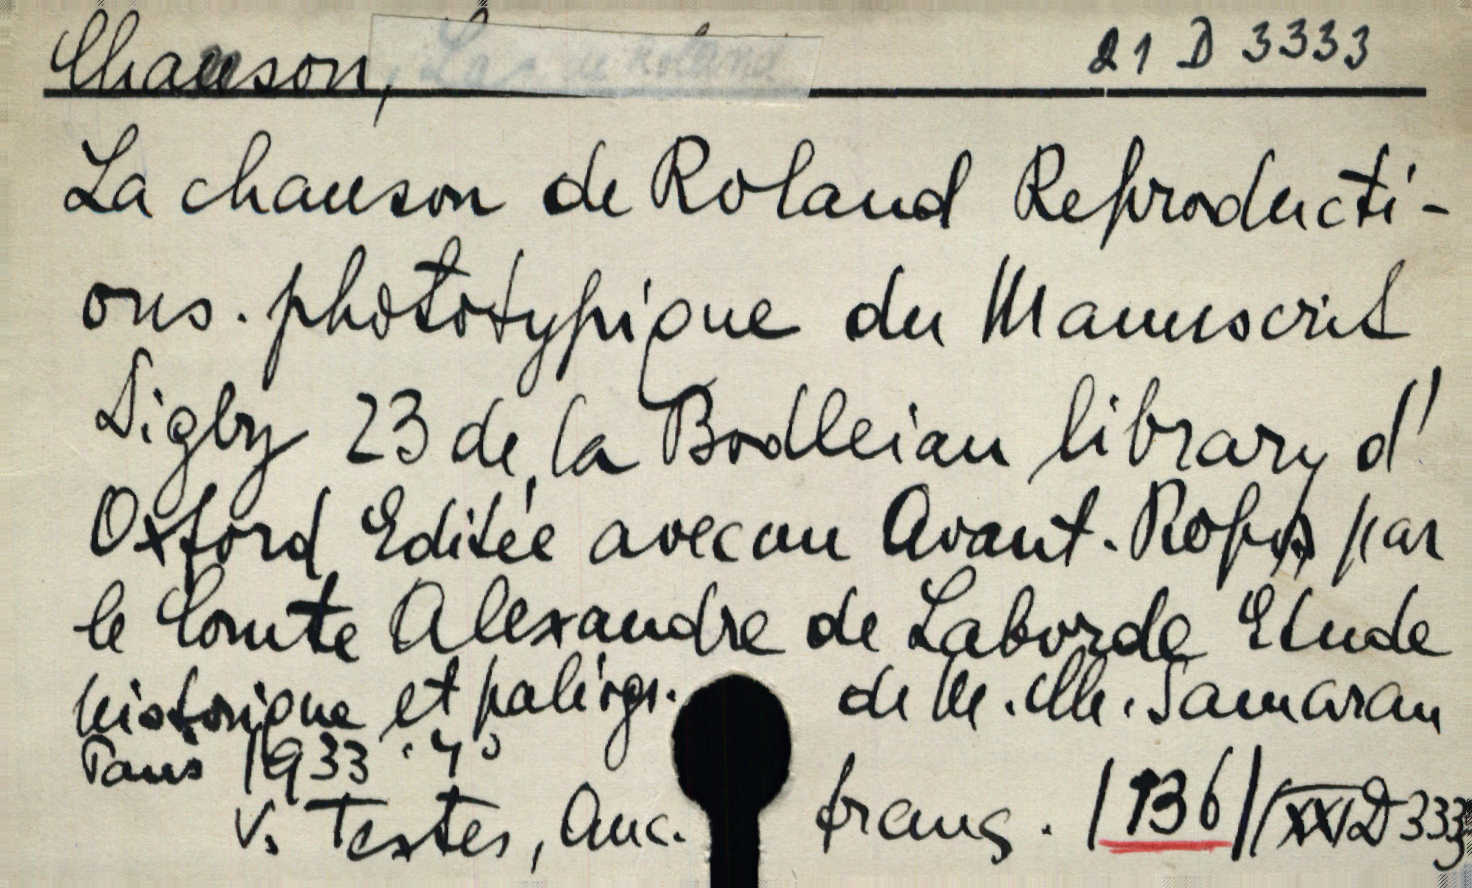 Chanson, La c de Roland 21 D 3333
La chanson de Roland Reproducti-
ons. phototypique du Manuscrit
Digby 23 de la Bodleian library d'
Oxford Editée avec un Avant-Propos par
le Comte Alexandre de Laborde Etude
historique et paléogr. de M. Ch. Samaran
Paris 1933 . 4°
V. Textes, Anc. franç. |1936| (XXI D 333